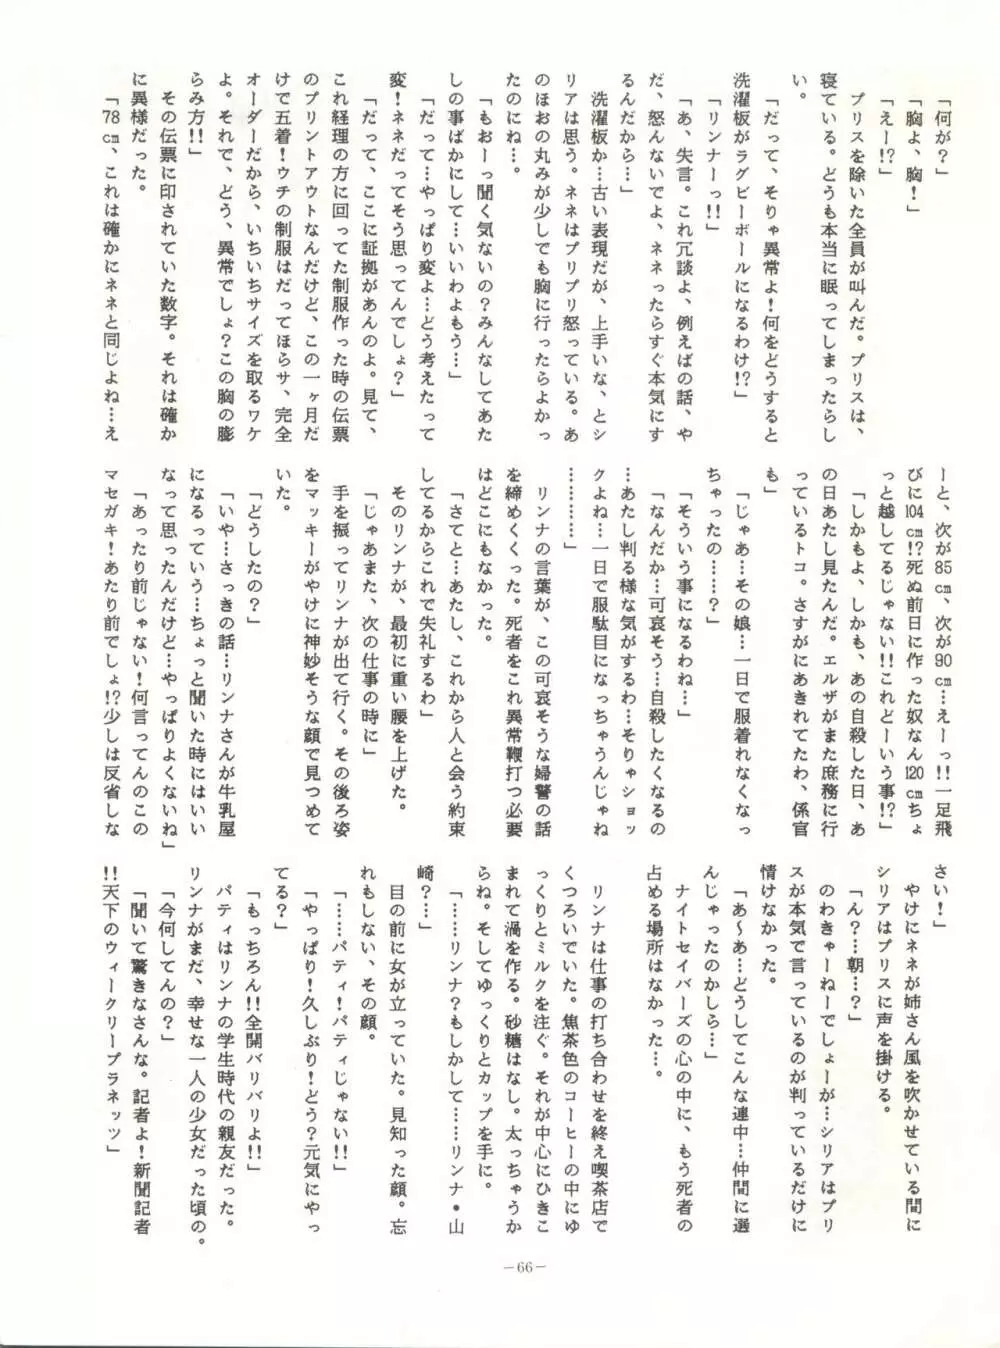 「何が？」
「胸よ、胸！」
「えー!?」
　プリスを除いた全員が叫んだ。プリスは、
寝ている。どうも本当に眠ってしまったらし
い。
「だって、そりゃ異常よ！何をどうすると
洗濯板がラグビーボールになるわけ!?」
「リンナーっ!!」
「あ、失言。これ冗談よ、例えばの話、や
だ、怒んないでよ、ネネったらすぐ本気にす
るんだから…」
　洗濯板か…古い表現だが、上手いな、とシ
リアは思う。ネネはプリプリ怒っている。あ
のほおの丸みが少しでも胸に行ったらよかっ
たのにね…。
「もおーっ聞く気ないの？みんなしてあた
しの事ばかにして…いいわよもう…」
「だって…やっぱり変よ…どう考えたって
変！ネネだってそう思ってんでしょ？」
「だって、ここに証拠があんのよ。見て、
これ経理の方に回ってた制服作った時の伝票
のプリントアウトなんだけど、この一ヶ月だ
けで五着！ウチの制服はだってほらサ、完全
オーダーだから、いちいちサイズを取るワケ
よ。それで、どう、異常でしょ？この胸の膨
らみ方!!」
　その伝票に印されていた数字。それは確か
に異様だった。
「78㎝、これは確かにネネと同じよね…え
ーと、次が85㎝、次が90㎝…えーっ!!一足飛
びに104㎝!?死ぬ前日に作った奴なん120㎝ちょ
っと越してるじゃない!!これどーいう事!?」
「しかもよ、しかも、あの自殺した日、あ
の日あたし見たんだ。エルザがまた庶務に行
っているトコ。さすがにあきれてたわ、係官
も」
「じゃあ…その娘…一日で服着れなくなっ
ちゃったの……？」
「そういう事になるわね…」
「なんだか…可哀そう…自殺したくなるの
…あたし判る様な気がするわ…そりゃショッ
クよね…一日で服駄目になっちゃうんじゃね
…………」
　リンナの言葉が、この可哀そうな婦警の話
を締めくくった。死者をこれ異常鞭打つ必要
はどこにもなかった。
「さてと…あたし、これから人と会う約束
してるからこれで失礼するわ」
　そのリンナが、最初に重い腰を上げた。
「じゃあまた、次の仕事の時に」
　手を振ってリンナが出て行く。その後ろ姿
をマッキーがやけに神妙そうな顔で見つめて
いた。
「どうしたの？」
「いや…さっきの話…リンナさんが牛乳屋
になるっていう…ちょっと聞いた時にはいい
なって思ったんだけど…やっぱりよくないね」
「あったり前じゃない！何言ってんのこの
マセガキ！あたり前でしょ!?少しは反省しな
さい！」
　やけにネネが姉さん風を吹かせている間に
シリアはプリスに声を掛ける。
「ん？…朝…？」
　のわきゃーねーでしょーが…シリアはプリ
スが本気で言っているのが判っているだけに
情けなかった。
「あ〜あ…どうしてこんな連中…仲間に選
んじゃったのかしら…」
　ナイトセイバーズの心の中に、もう死者の
占める場所はなかった…。
　リンナは仕事の打ち合わせを終え喫茶店で
くつろいでいた。焦茶色のコーヒーの中にゆ
っくりとミルクを注ぐ。それが中心にひきこ
まれて渦を作る。砂糖はなし。太っちゃうか
らね。そしてゆっくりとカップを手に。
「……リンナ？もしかして……リンナ・山
崎？…」
　目の前に女が立っていた。見知った顔。忘
れもしない、その顔。
「……パティ！パティじゃない!!」
「やっぱり！久しぶり！どう？元気にやっ
てる？」
「もっちろん!!全開バリバリよ!!」
　パティはリンナの学生時代の親友だった。
リンナがまだ、幸せな一人の少女だった頃の。
「今何してんの？」
「聞いて驚きなさんな。記者よ！新聞記者
!!天下のウィークリープラネッツ」
－66－